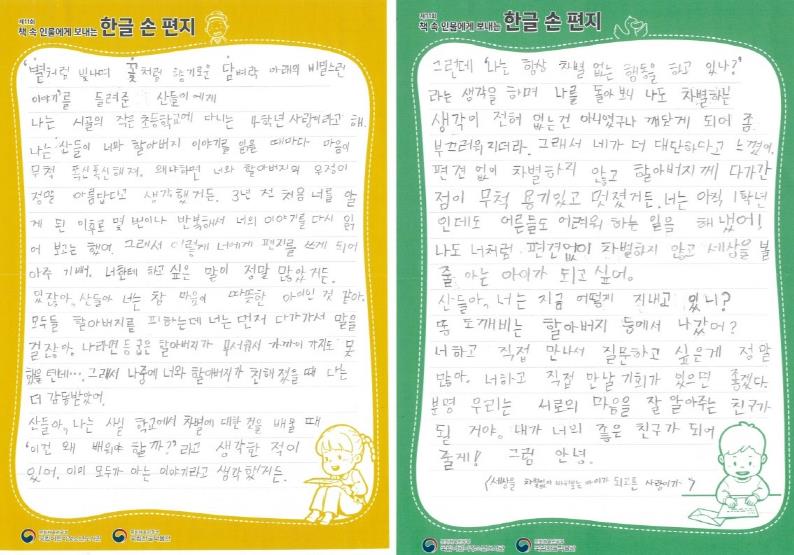 제11회
책 속 인물에게 보내는 한글 손 편지
'별처럼 빛나며 꽃처럼 향기로운 담벼락 아래의 비밀스런
이야기'를 들려준 산들이에게
나는 시골의 작은 초등학교에 다니는 4학년 사랑이라고 해.
나는 산들이 너와 할아버지 이야기를 읽을 때마다 마음이
무척 푹신푹신해져. 왜냐하면 너와 할아버지의 우정이
정말 아름답다고 생각했거든. 3년 전 처음 너를 알
게 된 이후로 몇 번이나 반복해서 너의 이야기를 다시 읽
어 보고는 했어. 그래서 이렇게 너에게 편지를 쓰게 되어
아주 기뻐. 너한테 하고 싶은 말이 정말 많았거든.
있잖아, 산들아 너는 참 마음이 따뜻한 아이인 것 같아.
모두들 할아버지를 피하는데 너는 먼저 다가가서 말을
걸잖아. 나라면 등 굽은 할아버지가 무서워서 가까이 가지도 못
했을 텐데…. 그래서 나중에 너와 할아버지가 친해졌을 때 나는
더 감동받았어.
산들아, 나는 사실 학교에서 차별에 대한 것을 배울 때
'이건 왜 배워야 할까?'라고 생각한 적이
있어. 이미 모두가 아는 이야기라고 생각했거든.
국립한글박물관
제11회
책 속 인물에게 보내는 한글 손 편지
그런데 '나는 항상 차별 없는 행동을 하고 있나?'
라는 생각을 하며 나를 돌아 봐서 나도 차별하는
생각이 전혀 없는건 아니었구나 깨닫게 되어 좀
부끄러워지더라. 그래서 네가 더 대단하다고 느꼈어.
편견 없이 차별하지 않고 할아버지께 다가간
점이 무척 용기있고 멋졌거든. 너는 아직 1학년
인데도 어른들도 어려워 하는 일을 해냈어!
나도 너처럼 편견없이 차별하지 않고 세상을 볼
줄 아는 아이가 되고 싶어.
산들아, 너는 지금 어떻게 지내고 있니?
또 도깨비는 할아버지 등에서 나갔어?
너하고 직접 만나서 질문하고 싶은게 정말
많아. 너하고 직접 만날 기회가 있으면 좋겠다.
분명 우리는 서로의 마음을 잘 알아주는 친구가
될 거야. 내가 너의 좋은 친구가 되어
줄게! 그럼 안녕.
(세상을 차별없이 바라보는 아이가 되고픈 사랑이가)
국립한글박물관